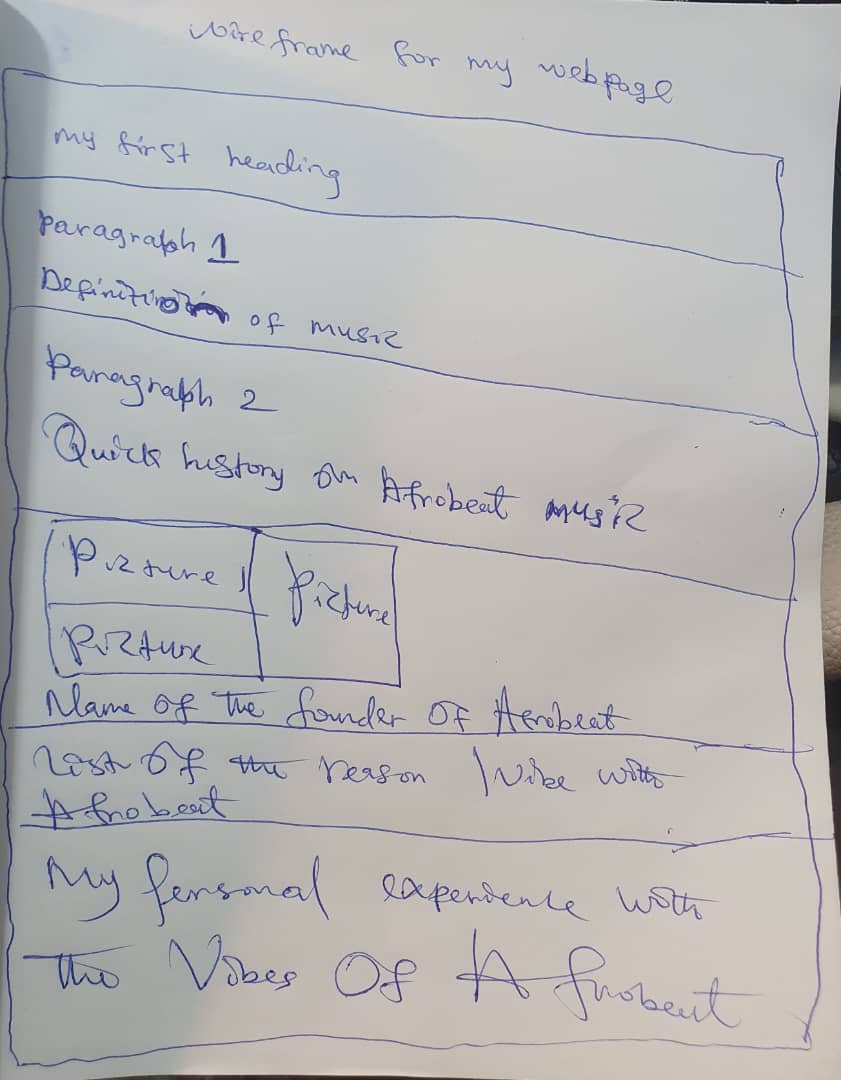 wireframe for my webpage
my first heading
paragraph 1
Definition of music
Paragraph 2
Quick history on Afrobeat music
Picture
Picture
Picture
Name of the founder of Afrobeat
List of the reason I vibe with
Afrobeat
My personal experience with
the Vibes Of Afrobeat